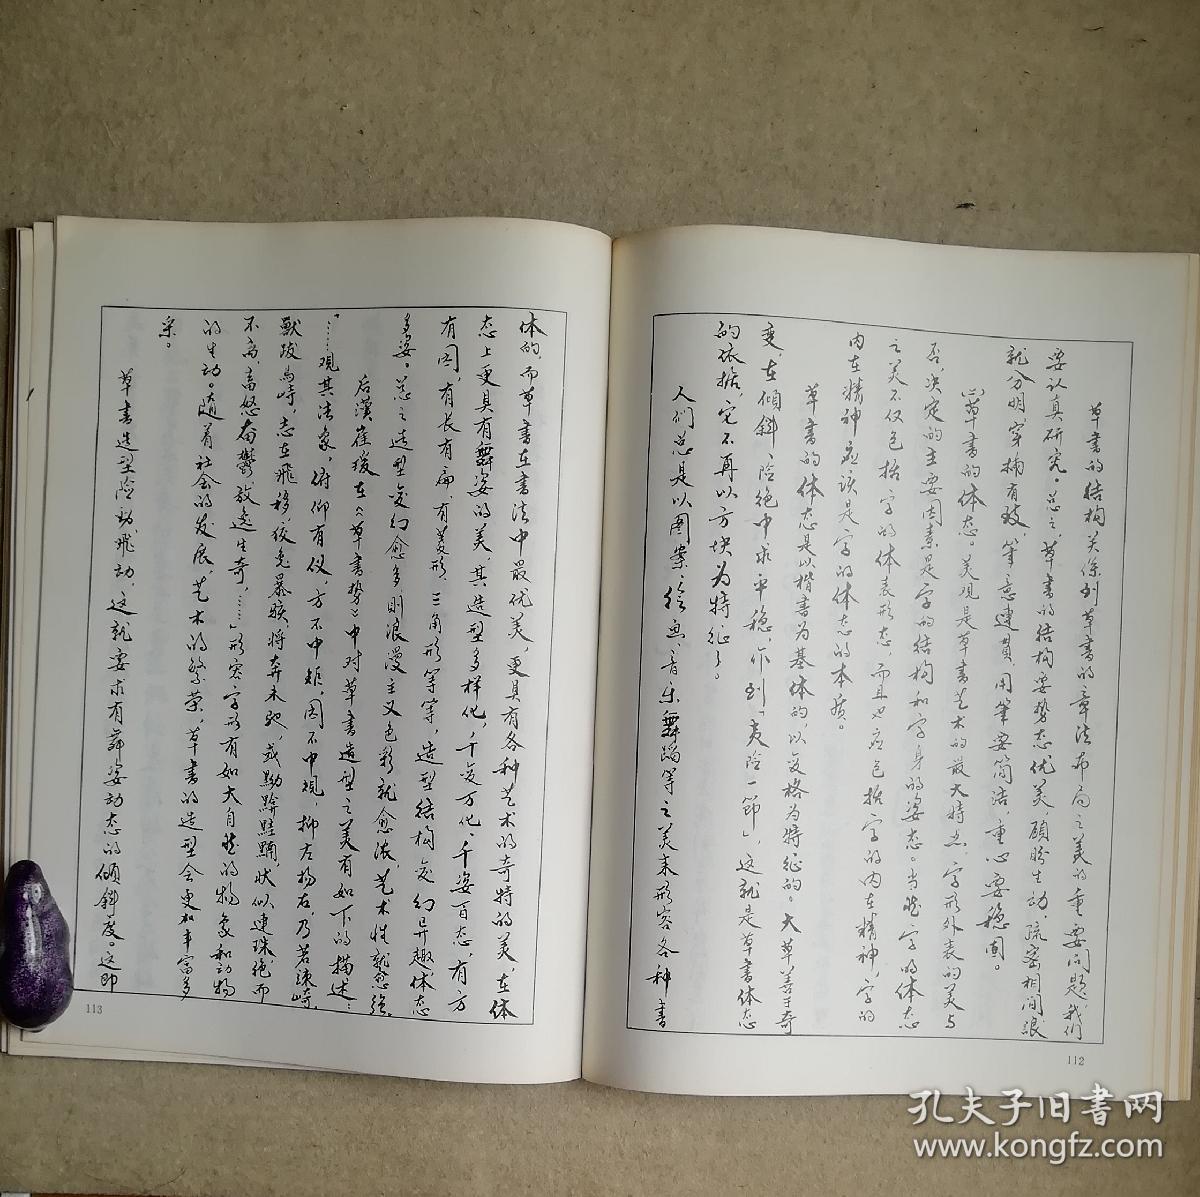 草书的结构关系到草书的章法布局之美的重要问题，我们
要认真研究。总之，草书的结构要势态优美，顾盼生动，疏密相间，
就分明，穿插有致，笔意连贯，用笔要简洁，重心要稳固。
㈡草书的体态。美观是草书艺术的最大特点，字形外表的美与
否，决定的主要因素是字的结构和字身的姿态。当然，字的体态
之美不仅包括字的体表形态，而且也应包括字的内在精神，字的
内在精神应该是字的体态的本质。
草书的体态是以楷书为基体的以变格为特征的。大草善于奇
变，在倾斜、险绝中求平稳，作到「夷险一节」，这就是草书体态
的依据，它不再以方块为特征了。
人们总是以图案、绘画、音乐、舞蹈等之美来形容各种书
112
体的，而草书在书法中最优美，更具有各种艺术的奇特的美，在体
态上更具有舞姿的美，其造型多样化，千变万化，千姿百态，有方
有圆，有长有扁，有菱形、三角形等等，造型结构变幻异趣，体态
多姿。总之造型变幻愈多，则浪漫主义色彩就愈浓，艺术性就愈强。
后漢崔瑗在《草書勢》中对草书造型之美有如下的描述：
「……观其法象，俯仰有仪，方不中矩，圆不中规，抑左扬右，乃若竦峙，
獸跂鸟峙，志在飛移，狡兔暴駭，将奔未驰，或黝黭點䵵，状似连珠，绝而
不离，畜怒奋鬱，放逸生奇，……」形容字形有如大自然的物象和动物
的生动。随着社会的发展，艺术的繁荣，草书的造型会更加丰富多
采。
草书造型险劲飞动，这就要求有舞姿动态的倾斜度。这即
113
孔夫子旧书网
www.kongfz.com